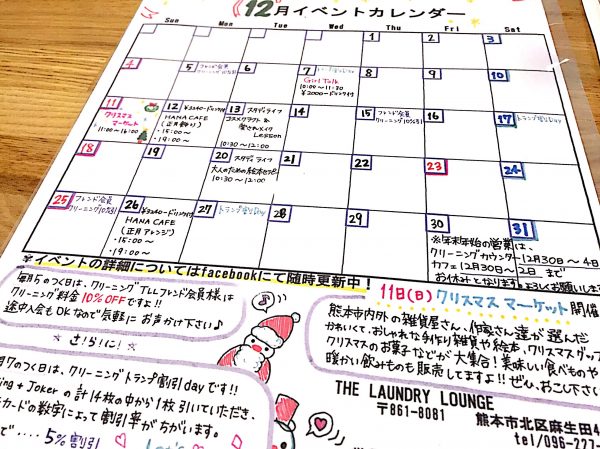 12月イベントカレンダー
Sun Mon Tue Wed Thu Fri Sat
1 2 3
4 5 フレンド会員 クリーニング10%割引 6 7 Girl Talk 10:00〜11:30 ¥2000-ドリンク付 8 9 10
11 クリスマス マーケット 11:00〜16:00
12 ¥3240-ドリンク付 HANA CAFE (正月飾り) ・15:00〜 ・19:00〜
13 スタディライフ コスメクラフト & 愛されメイク Lesson 10:30〜12:00
14 15 フレンド会員 クリーニング10%割引 16 17 トランプ割引Day
18 19 20 スタディライフ 大人のための絵本セラピー 10:30〜12:00 21 22 23 24
25 フレンド会員 クリーニング10%割引
26 ¥3240-ドリンク付 HANA CAFE (正月アレンジ) ・15:00〜 ・19:00〜
27 トランプ割引Day 28 29 30 31
※年末年始の営業は、
クリーニングカウンター 12月30日〜4日
カフェ 12月30日〜2日 まで
お休みとなります。よろしくお願いし
※イベントの詳細についてはfacebookにて随時更新中!
毎月5のつく日は、クリーニングTLLフレンド会員様は
クリーニング料金 10%OFFですよ!!
途中入会もOKなので気軽に お声かけ下さい♪
さ!ら!に!
月7のつく日は、クリーニングトランプ割引dayです!!
ing+Jokerの計14枚の中から1枚引いていただき、
カードの数字によって割引率がちがいます。
で‥‥ 5%割引
Let's
11日(日) クリスマス マーケット 開催
熊本市内外の雑貨屋さん、作家さん達が選んだ
かわいくて、おしゃれな手作り雑貨や絵本、クリスマスグッ
クリスマスのお菓子などが大集合!美味しい食べものや
暖かい飲みものも販売してますよ!!ぜひ、おこし下さい
THE LAUNDRY LOUNGE
〒861-8081 熊本市北区麻生田4
tel/096-227-